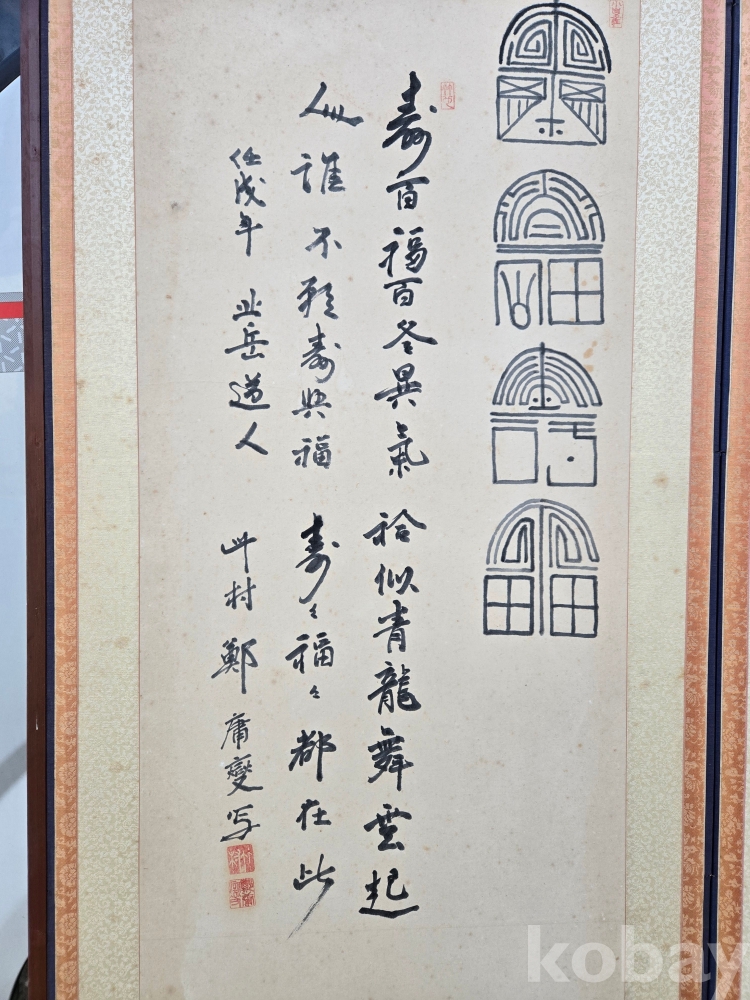 壽百福百各異氣 恰似青龍舞雲起
人人誰不願壽與福 壽々福々都在此
戌年 岳道人 村 鄭庸燮写
kobay